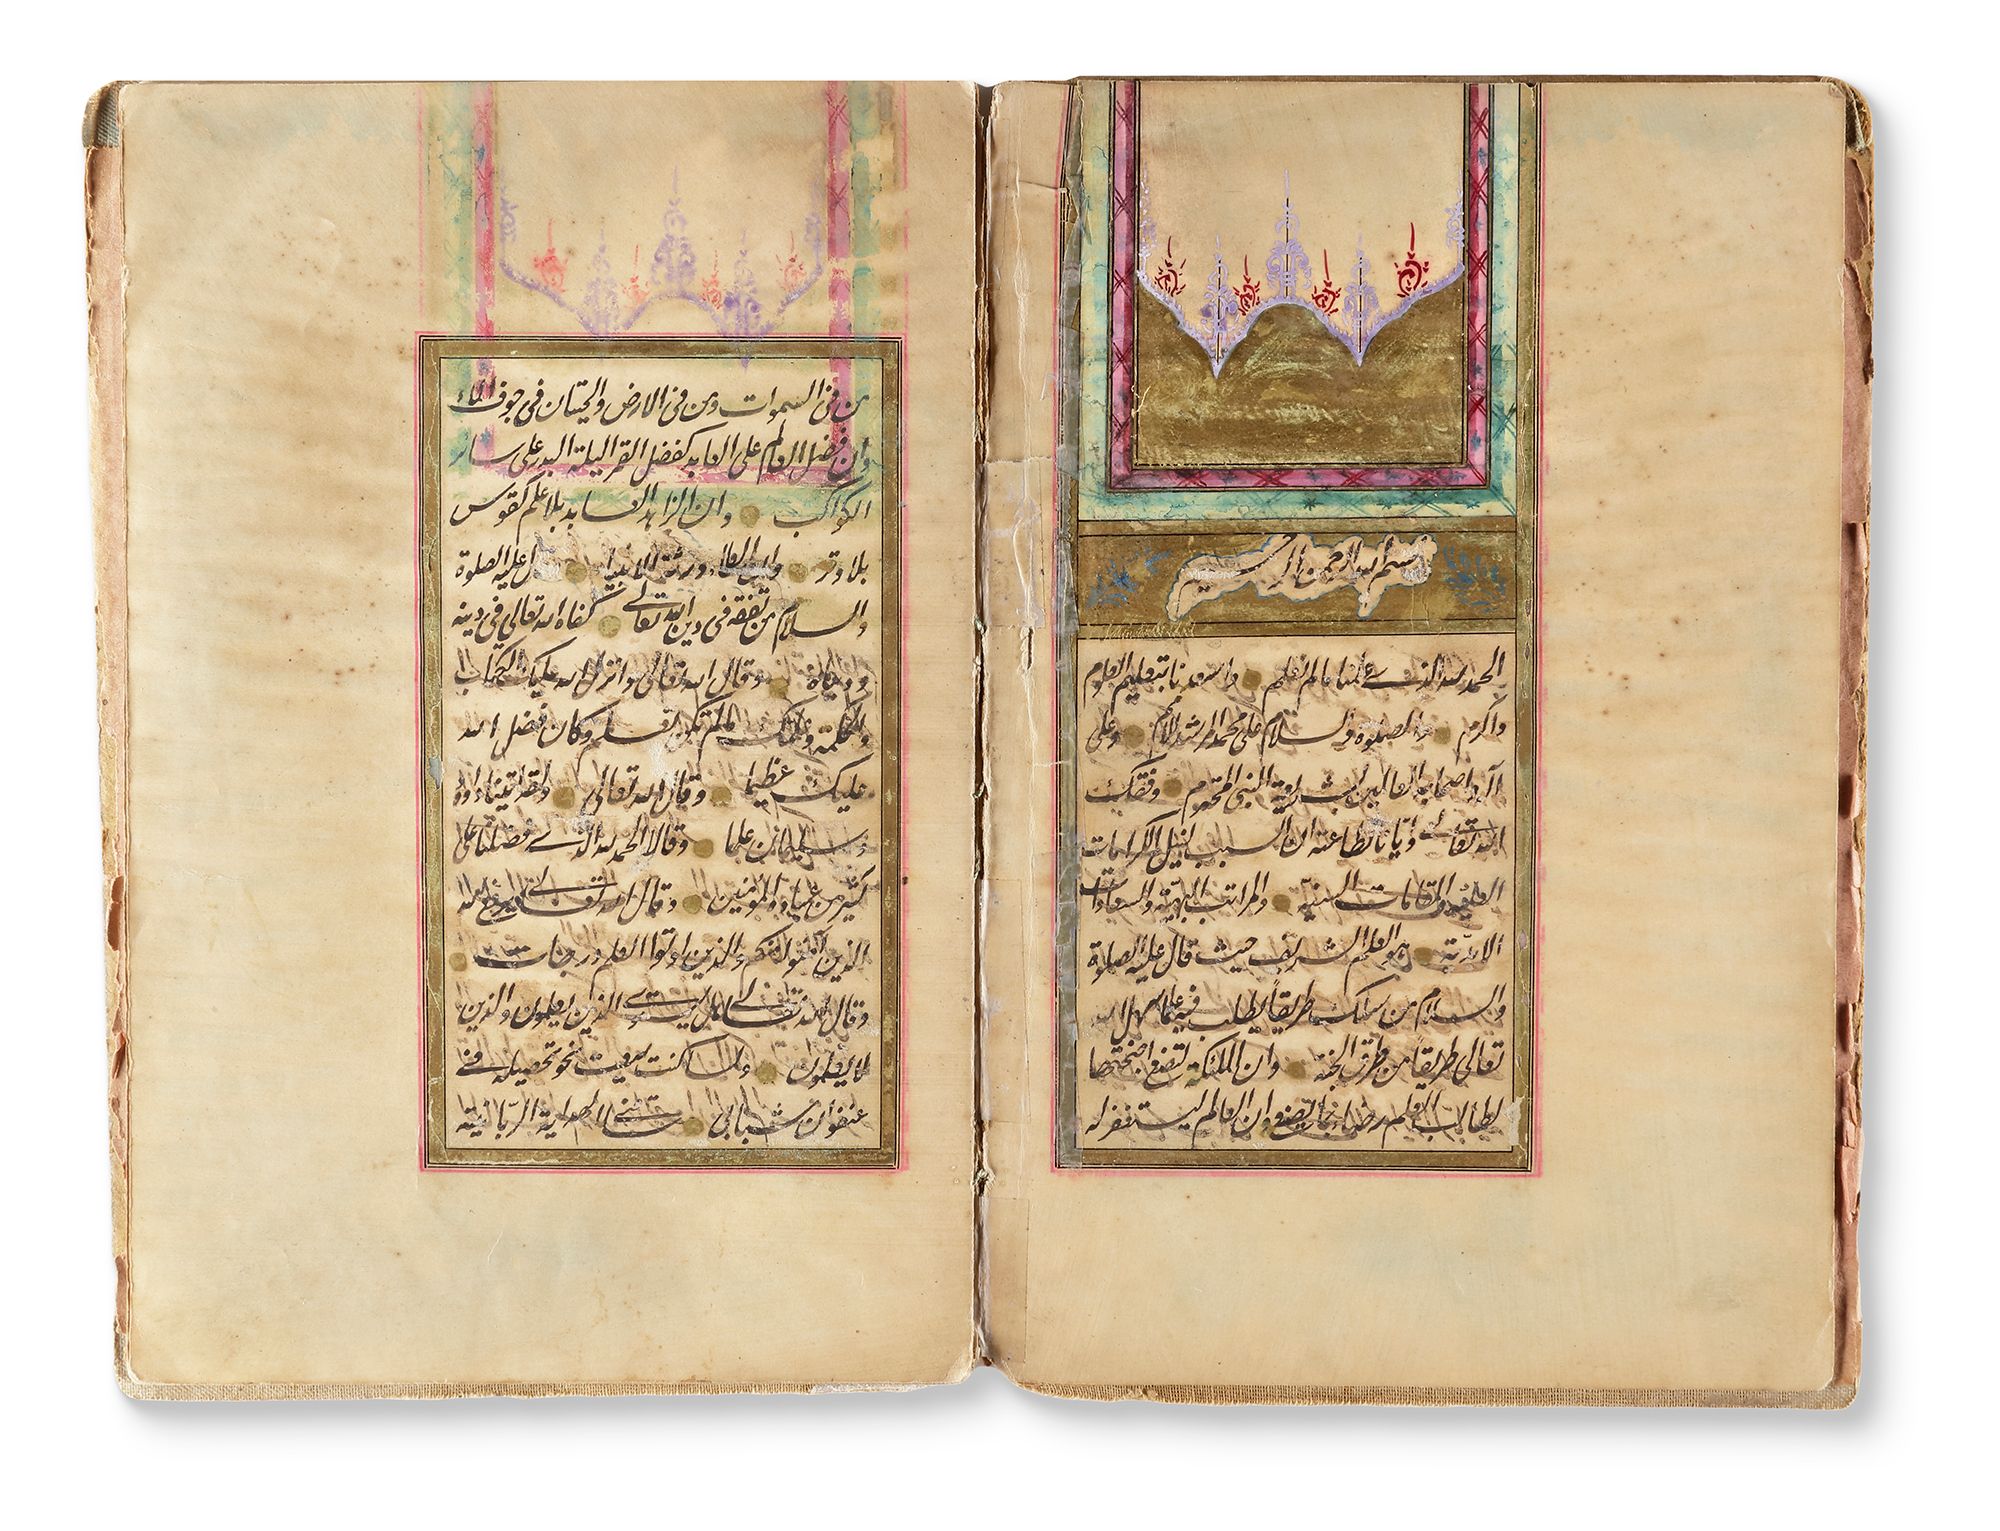 بسم الله الرحمن الرحيم
الحمد لله الذي علمنا ما لم نعلم واسعدنا بتعليم العلوم
واكرم والصلوة والسلام على محمد المرشد الامم وعلى
آله واصحابه العالمين بشريعة النبي المحترم وفقك
الله تعالى وايانا لطاعته ان السبب لنيل الكرامات
العلية والمقامات السنية والمراتب البهية والسعادات
الابدية هو العلم الشريف حيث قال عليه الصلوة
والسلام من سلك طريقاً يطلب فيه علما سهل الله
تعالى طريقاً من طرق الجنة وان الملئكة لتضع اجنحتها
لطالب العلم رضاء بما يصنع وان العالم ليستغفر له
من في السموات ومن في الارض والحيتان في جوف الماء
وان فضل العالم على العابد كفضل القمر ليلة البدر على سائر
الكواكب وان الزاهد العابد بلا علم كقوس
بلا وتر وان العلماء ورثة الانبياء قال عليه الصلوة
والسلام من تفقه في دين الله تعالى كفاه الله تعالى في دينه
ودنياه وقال الله تعالى وانزل الله عليك الكتاب
والحكمة وعلمك ما لم تكن تعلم وكان فضل الله
عليك عظيما وقال الله تعالى ولقد آتينا داود
وسليمان علما وقالا الحمد لله الذي فضلنا على
كثير من عباده المؤمنين وقال الله تعالى يرفع الله
الذين آمنوا منكم والذين اوتوا العلم درجات
وقال الله تعالى هل يستوي الذين يعلمون والذين
لا يعلمون ولما كنت سعيت نحو تحصيله في
عنفوان شبابي ساقني الهداية الربانية